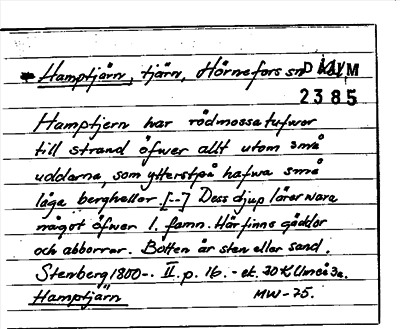 Hamptjärn, tjärn, Hörnefors sn
DAUM
2385
Hamptjern har rödmossatufwor
till strand öfwer allt utom små
uddarna, som ytterst på hafwa små
låga berghellor [--] Dess djup lärer wara
något öfwer 1. famn. Här finns gäddor
och abborrar. Botten är sten eller sand.
Stenberg 1800-. II. p. 16. - et. 20 K Umeå 3a.
Hamptjärn
MW-75.